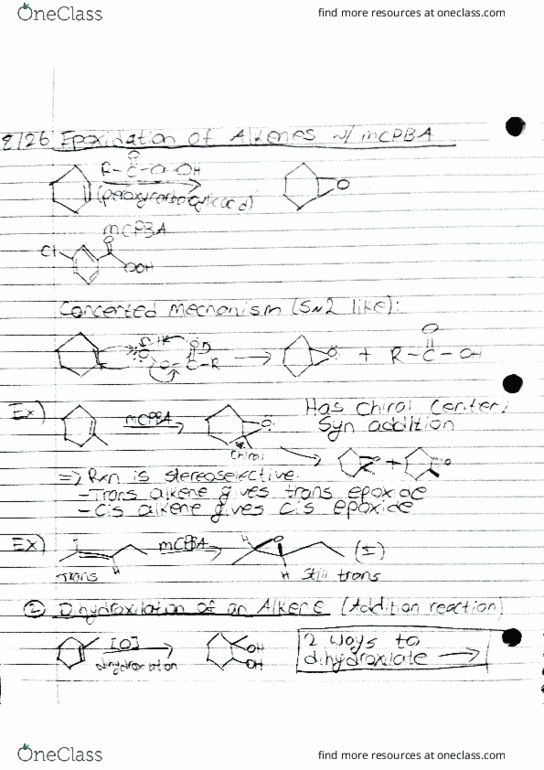 OneClass
find more resources at oneclass.com
8/26 Epoxidation of Alkenes w/ mCPBA
O
R-C-O-OH
(peroxycarboxylic acid)
O
mCPBA
Cl
O
OOH
Concerted Mechanism (SN2 like):
O
+ R-C-OH
Ex)
mCPBA
O
Has Chiral Center,
Syn addition
Chiral
+
=> Rxn is stereoselective.
-Trans alkene gives trans epoxide
-Cis alkene gives cis epoxide
Ex)
mCPBA
H
O
(±)
Trans
H
H
Still trans
② Dihydroxilation of an Alkene (Addition reaction)
[O]
dihydroxilation
OH
OH
2 ways to
dihydroxilate →
OneClass
find more resources at oneclass.com